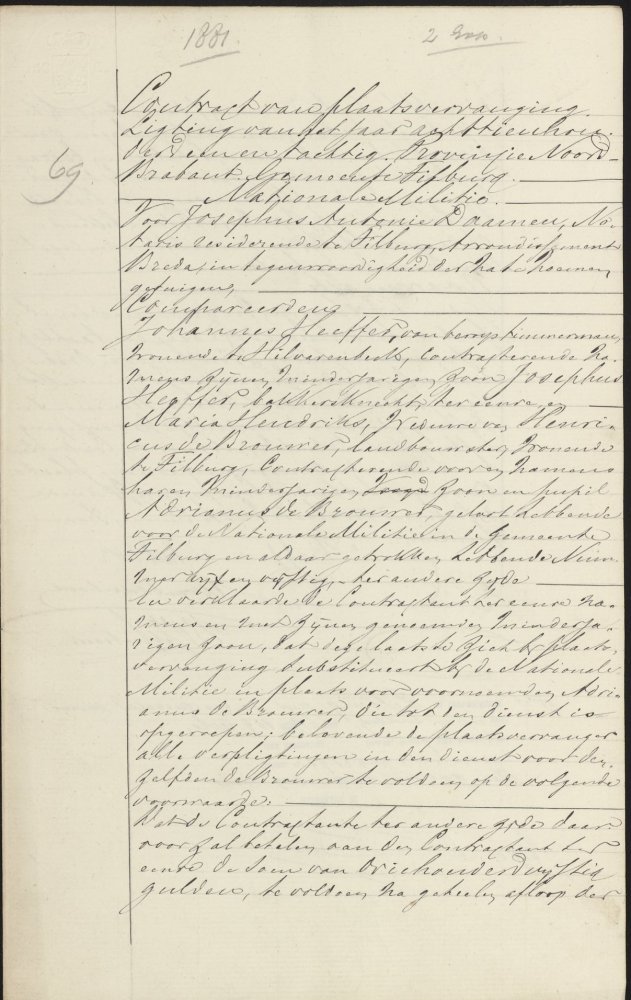 1881.
2
69
Contract van plaatsvervanging.
Ligting van het jaar achttienhon-
derd een en tachtig. Provinsie Noord-
Brabant. Gemeente Tilburg.
Nationale Militie.
Voor Josephus Antonie Daamen, No-
taris resideerende te Tilburg, Arrondissement
Breda, in tegenwoordigheid der na te noemen
getuigen,
Compareerden
Johannes Heeffer, van beroep timmerman,
wonende te Hilvarenbeek, contracterende na-
mens zijnen minderjarigen zoon Josephus
Heeffer, bakkersknecht, ter eenre, en
Maria Hendriks, weduwe van Henri-
cus de Brouwer, landbouwster, wonende
te Tilburg, Contracterende voor en namens
haren minderjarigen zoon en pupil
Adrianus de Brouwer, geloot hebbende
voor de Nationale Militie in de gemeente
Tilburg en aldaar getrokken hebbende Num-
mer vijf en vijftig, ter andere zijde
en verklaarde de Contractant ter eenre na-
mens en met zijnen genoemden minderja-
rigen zoon, dat deze laatste zich bij plaats-
vervanging substitueert bij de Nationale
Militie in plaats voor voornoemden Adri-
anus de Brouwer, die tot den dienst is
opgeroepen; belovende de plaatsvervanger
alle verpligtingen in den dienst voor den-
zelfden de Brouwer te voldoen op de volgende
voorwaarde:
Dat de Contractante ter andere zijde daar-
voor zal betalen aan den Contractant ter
eenre de som van driehonderd vijftig
gulden, te voldoen na geheelen afloop der